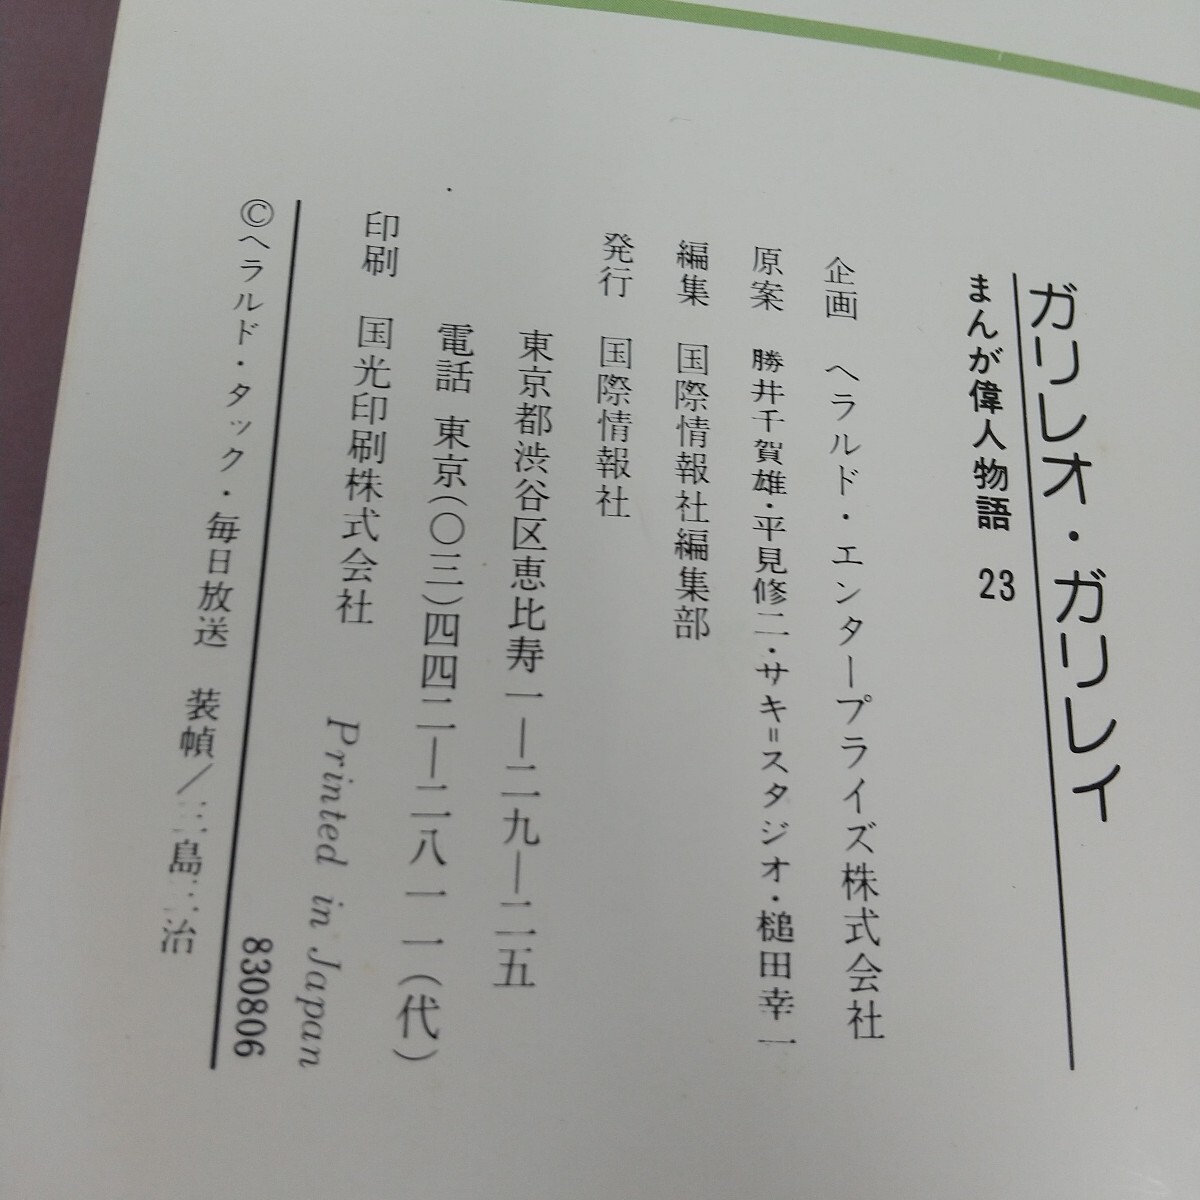 ガリレオ・ガリレイ
まんが偉人物語 23
企画 ヘラルド・エンタープライズ株式会社
原案 勝井千賀雄・平見修二・サキ=スタジオ・槌田幸一
編集 国際情報社編集部
発行 国際情報社
東京都渋谷区恵比寿一―二九―二五
電話 東京(〇三)四四二―二八一一(代)
印刷 国光印刷株式会社 Printed in Japan
830806
©ヘラルド・タック・毎日放送 装幀/三島三治